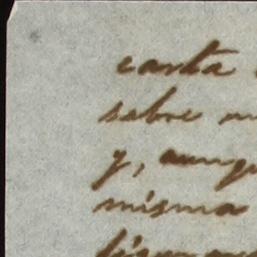 carta
sobre
y, aunq
misma